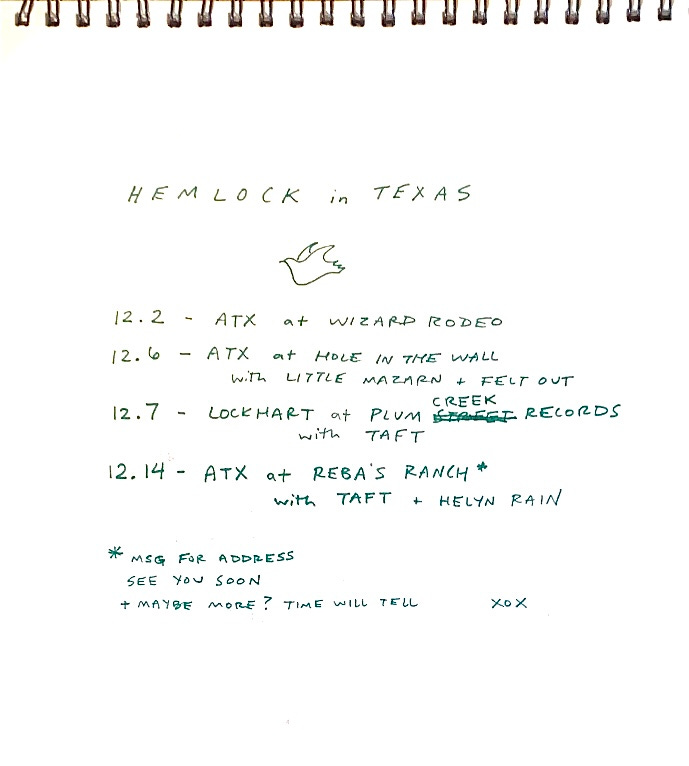 HEMLOCK in TEXAS
12.2 - ATX at WIZARD RODEO
12.6 - ATX at HOLE IN THE WALL
with LITTLE MAZARN + FELT OUT
CREEK
12.7 - LOCKHART at PLUM STREET RECORDS
with TAFT
12.14 - ATX at REBA'S RANCH*
with TAFT + HELYN RAIN
* MSG FOR ADDRESS
SEE YOU SOON
+ MAYBE MORE? TIME WILL TELL XOX